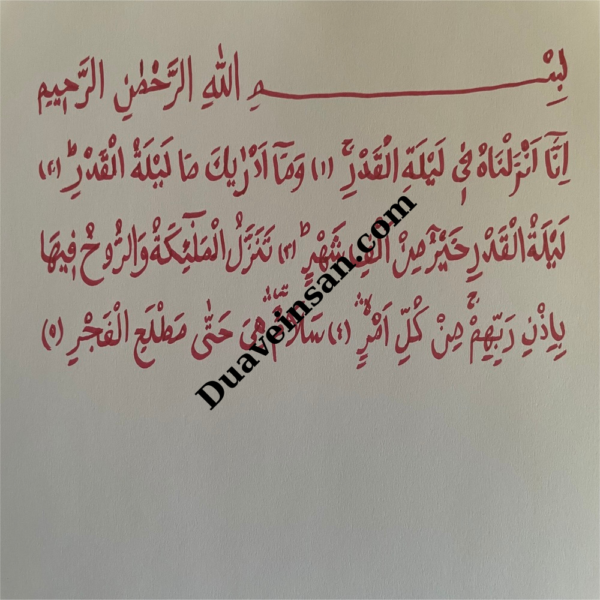 بِسْمِ اللهِ الرَّحْمٰنِ الرَّحِيمِ
اِنَّٓا اَنْزَلْنَاهُ فٖي لَيْلَةِ الْقَدْرِۚ ﴿١﴾ وَمَٓا اَدْرٰيكَ مَا لَيْلَةُ الْقَدْرِۜ ﴿٢﴾
لَيْلَةُ الْقَدْرِ خَيْرٌ مِنْ اَلْفِ شَهْرٍۜ ﴿٣﴾ تَنَزَّلُ الْمَلٰٓئِكَةُ وَالرُّوحُ فٖيهَا
بِاِذْنِ رَبِّهِمْۚ مِنْ كُلِّ اَمْرٍۙ ﴿٤﴾ سَلَامٌ۠ هِيَ حَتّٰى مَطْلَعِ الْفَجْرِ ﴿٥﴾
Duaveinsan.com